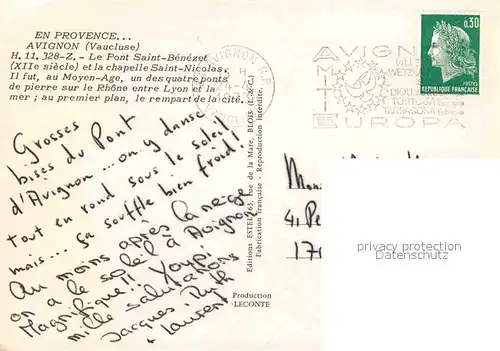 EN PROVENCE...
AVIGNON (Vaucluse)
H. 11. 328-Z. - Le Pont Saint-Bénézet
(XIIe siècle) et la chapelle Saint-Nicolas.
Il fut, au Moyen-Age, un des quatre ponts
de pierre sur le Rhône entre Lyon et la
mer ; au premier plan, le rempart de la cité.
Grosses
bises du Pont
d'Avignon... on y danse
tout en rond sous le soleil
mais... ça souffle bien froid!
Au moins après la neige
on a le soleil à Avignon
Magnifique!! Youpi
mille salutations
Jacques Ruth
Laurent
Production
LECONTE
Editions ESTEL, BLOIS (L. & C.)
Fabrication française - Reproduction interdite.
AVIGNON R.P.
AVIGN
AMITIE
EUROPA
VILLE
WETZLAR
TORTOSA
TARRAGONA
0,30
POSTES
REPUBLIQUE FRANÇAISE
Mon
41 Pe
17
privacy protection
DatenSchutz